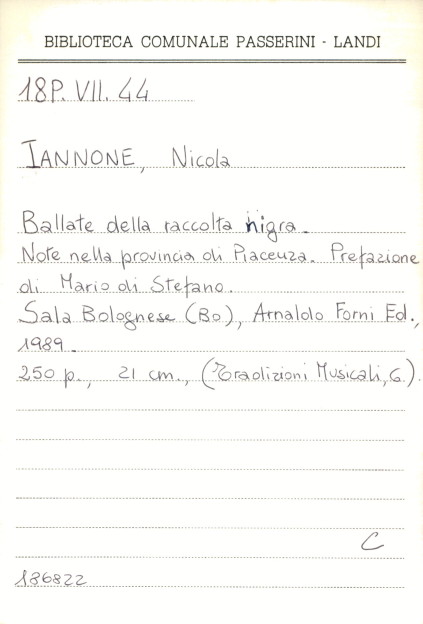 BIBLIOTECA COMUNALE PASSERINI - LANDI
18P. VII. 44
IANNONE, Nicola
Ballate della raccolta nigra.
Note nella provincia di Piacenza. Prefazione
di Mario di Stefano.
Sala Bolognese (Bo), Arnaldo Forni Ed.,
1989.
250 p., 21 cm., (Tradizioni Musicali, 6.).
C
186822